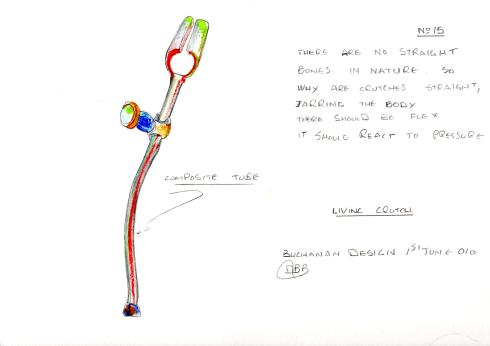 No15
THERE ARE NO STRAIGHT
BONES IN NATURE. SO
WHY ARE CRUTCHES STRAIGHT,
JARRING THE BODY
THERE SHOULD BE FLEX
IT SHOULD REACT TO PRESSURE
COMPOSITE TUBE
LIVING CRUTCH
BUCHANAN DESIGN 1ST JUNE 010